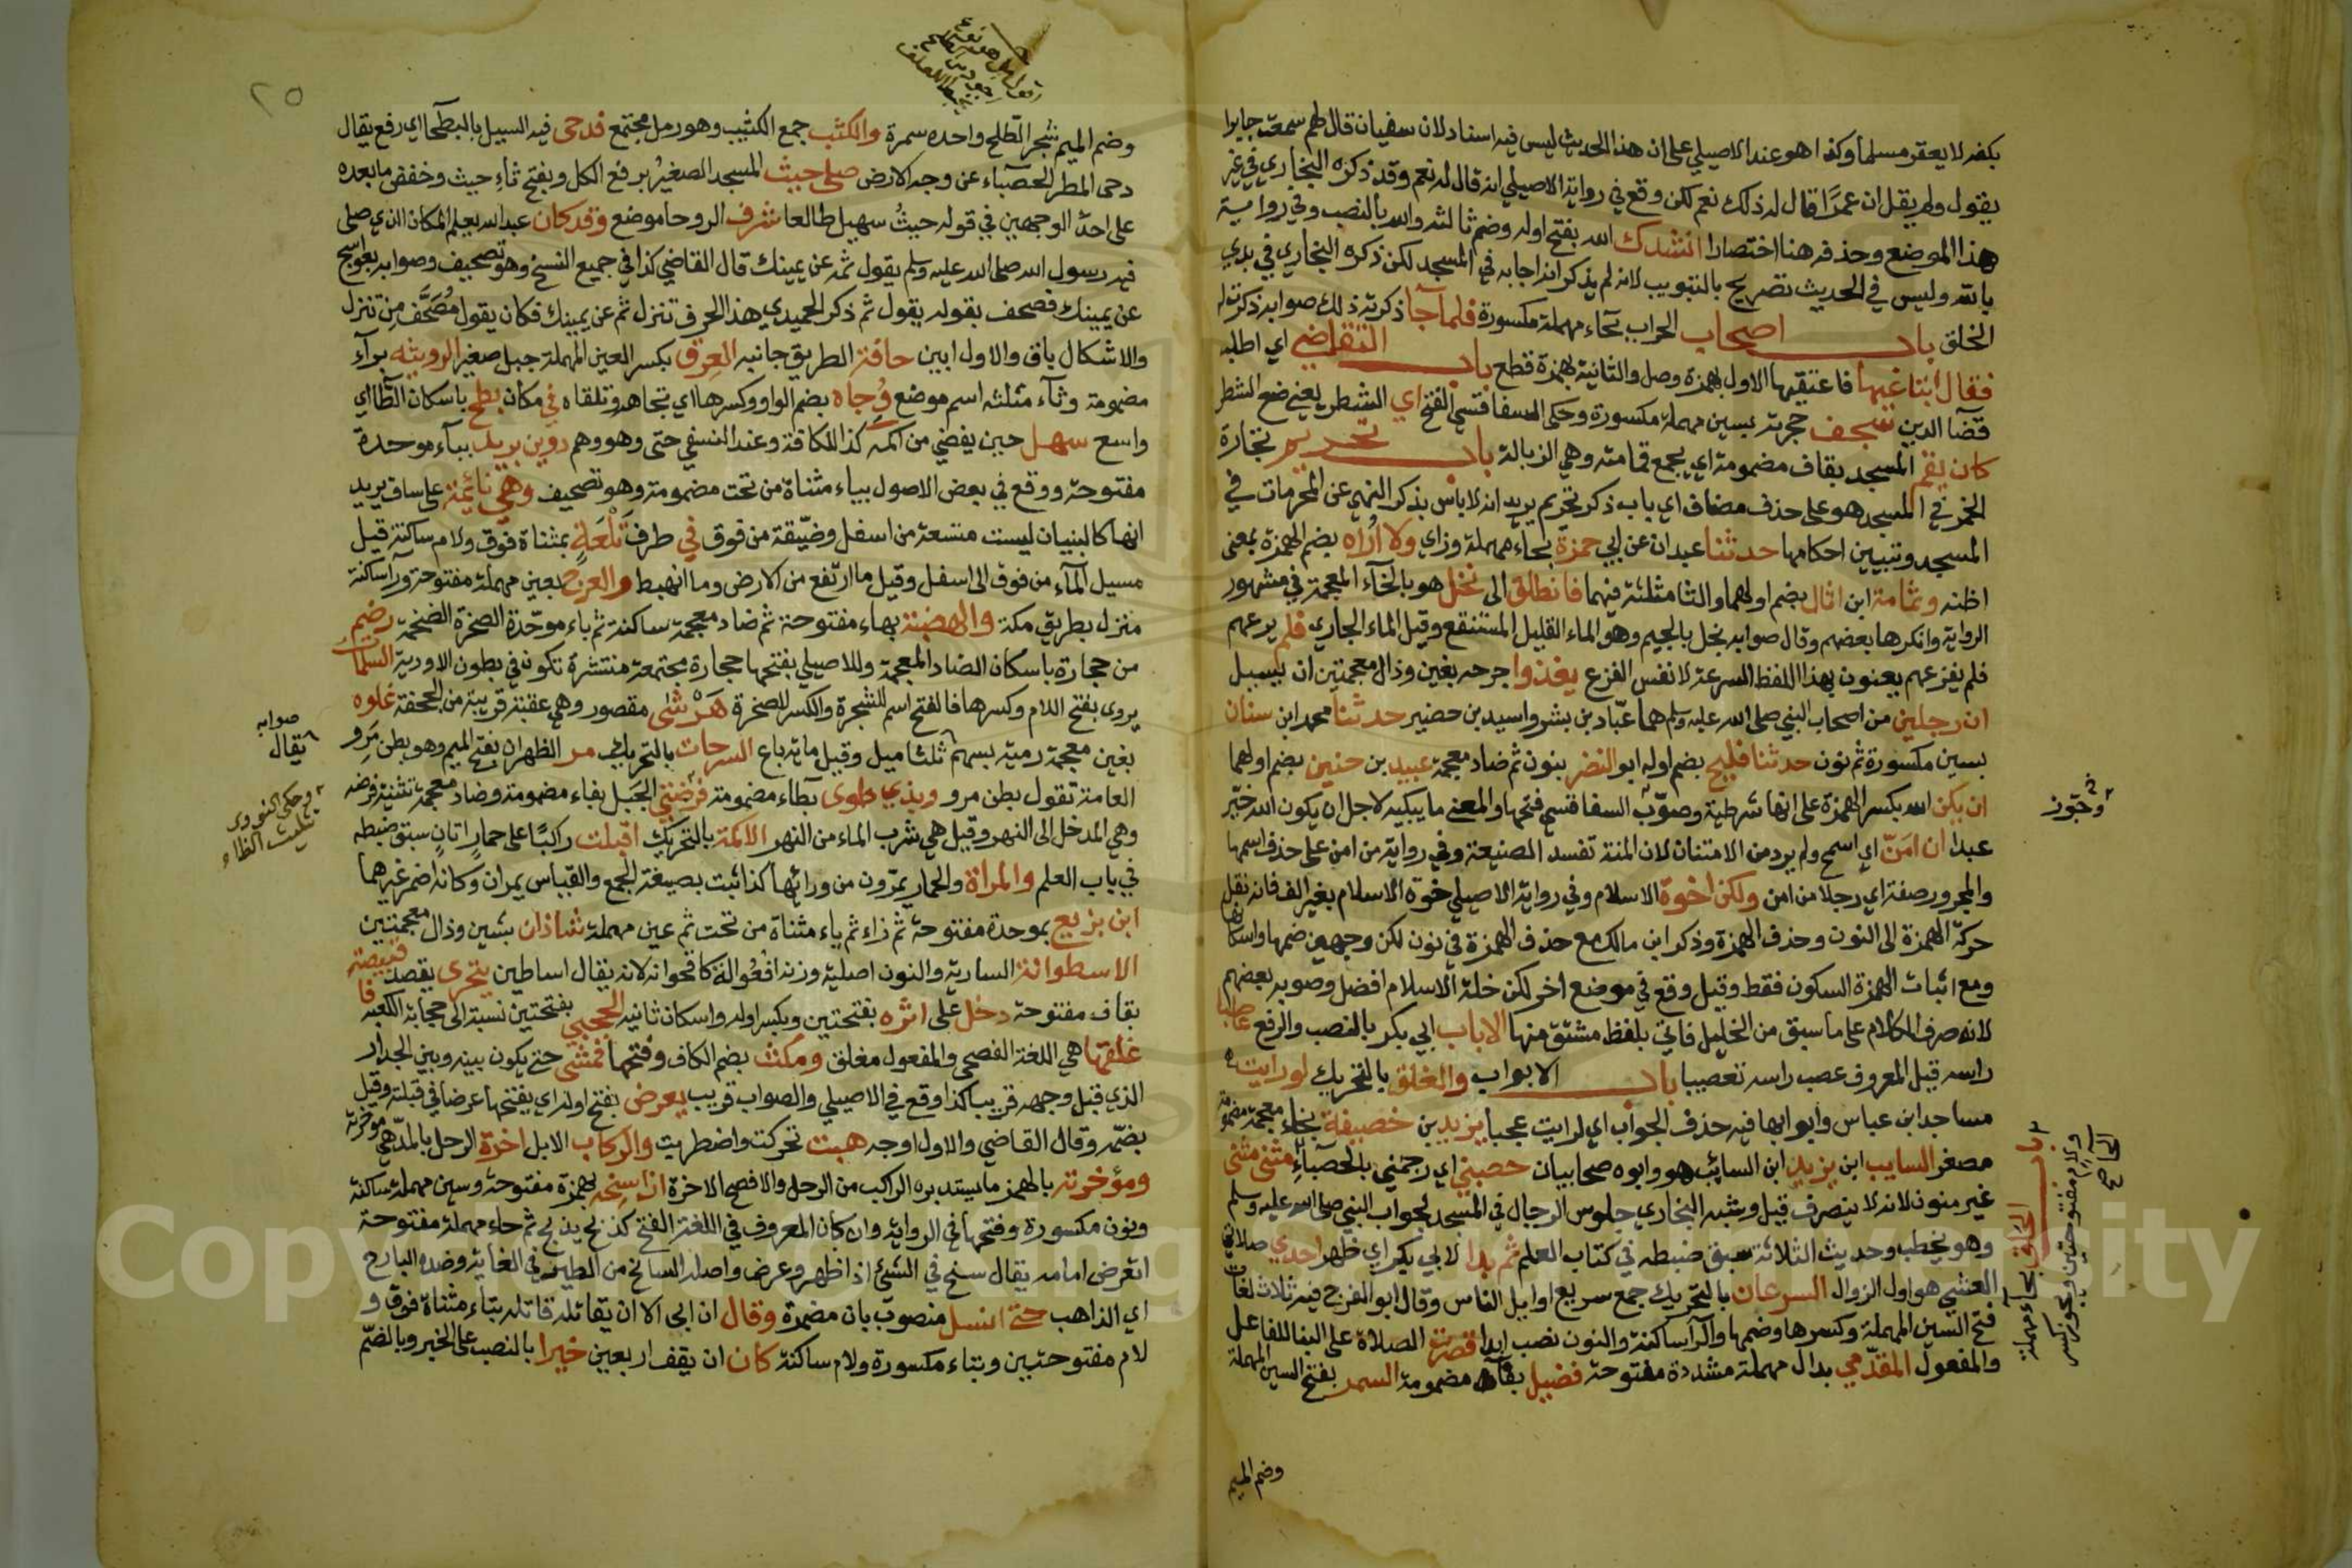 بكفه لا يعقر مسلما وكذا هو عند الاصيلي على ان هذا الحديث ليس فيه اسناد لان سفيان قال لهم سمعت جابرا
يقول ولم يقل ان عمرًا قال له ذلك نعم لكن وقع في رواية الاصيلي انه قال له نعم وقد ذكره البخاري في غير
هذا الموضع وحذفه هنا اختصارا انشدك الله بفتح اوله وضم ثالثه والله بالنصب وفي رواية
بالله وليس في الحديث تصريح بالتبويب لانه لم يذكر انه اجابه في المسجد لكن ذكره البخاري في بدي
الخلق باب اصحاب الحراب بحاء مهملة مكسورة فلما جا ذكرته ذلك صوابه ذكرت له
فقال ابتاعيها فاعتقيها الاول بهمزة وصل والثانية بهمزة قطع باب التقاضي اي اطلبه
قضآ الدين سجف حجرته بسين مهملة مكسورة وحكى السفاقسي الفتح اي الشطر يعني ضع الشطر
كان يقم المسجد بقاف مضمومة اي يجمع قمامته وهي الزبالة باب تحريم تجارة
الخمر في المسجد هو على حذف مضاف اي باب ذكر تحريم يريد انه لا باس بذكر النهي عن المحرمات في
المسجد وتبيين احكامها حدثنا عبدان عن ابي حمزة بحاء مهملة وزاي ولا اُراه بضم الهمزة بمعنى
اظنه وثمامة ابن اثال بضم اولهما والثا مثلثة فيهما فانطلق الى نخل هو بالخآء المعجمة في مشهور
الرواية وانكرها بعضهم وقال صوابه نجل بالجيم وهو الماء القليل المستنقع وقيل الماء الجاري فلم يرعهم
فلم يفزعهم يعنون بهذا اللفظ السرعة لا نفس الفزع يغذوا جرحه بغين وذال معجمتين ان يسيل
ان رجلين من اصحاب النبي صلى الله عليه وسلم هما عبّاد بن بشر واسيد بن حضير حدثنا محمد ابن سنان
بسين مكسورة ثم نون حدثنا فليح بضم اوله ابو النضر بنون ثم ضاد معجمة عبيد بن حنين بضم اولهما
ان يكن الله بكسر الهمزة على انها شرطية وصوّب السفاقسي فتحها والمعنى ما يبكيه لاجل ان يكون الله خيّر
عبدا ان امَنّ اي اسمح ولم يرد من الامتنان لان المنة تفسد الصنيعة وفي رواية من امن على حذف اسمها
والمجرور صفة اي رجلا من امن ولكن اخوة الاسلام وفي رواية الاصيلي خوة الاسلام بغير الف فانه نقل
حركة الهمزة الى النون وحذف الهمزة وذكر ابن مالك مع حذف الهمزة في نون لكن وجهين ضمها واسكانها
ومع اثبات الهمزة السكون فقط وقيل وقع في موضع اخر لكن خلة الاسلام افضل وصوبه بعضهم
لانه صرف الكلام على ما سبق من الخليل فاتى بلفظ مشتق منها الا باب ابي بكر بالنصب والرفع عاصبا
راسه قيل المعروف عصب راسه تعصيبا باب الابواب والغلق بالتحريك لو رايت
مساجد ابن عباس وابوابها فيه حذف الجواب اي لرايت عجبا يزيد بن خصيفة بخاء معجمة مضمومة
مصغر السايب ابن يزيد ابن السائب هو وابوه صحابيان حصبني اي رجمني بالحصباءِ مثنى مثنى
غير منون لانه لا ينصرف قيل وشبه البخاري جلوس الرجال في المسجد لجواب النبي صلى الله عليه وسلم
وهو يخطب وحديث الثلاثة سبق ضبطه في كتاب العلم ثم بدا لابي بكر اي ظهر احدي صلاتي
العشي هو اول الزوال السرعان بالتحريك جمع سريع اوايل الناس وقال ابو الفرج فيه ثلاث لغات
فتح السين المهملة وكسرها وضمها والرآ ساكنة والنون نصب ابدا قصرت الصلاة على البنا للفاعل
والمفعول المقدّمي بدال مهملة مشددة مفتوحة فضيل بفآء مضمومة السمر بفتح السين المهملة
وضم الميم
وجوّز
باب الحلق بحاء مهملة
ولام مفتوحتين ويجوز كسر
الحآء
صح
٢٥
وضم الميم شجر الطّلح واحده سمرة والكثب جمع الكثيب وهو رمل مجتمع فدحى فيه السيل بالبطحآ اي رفع يقال
دحى المطر الحصباء عن وجه الارض صلى حيث المسجد الصغير برفع الكل وبفتح ثاءِ حيث وخفض ما بعده
على احد الوجهين في قوله حيثُ سهيل طالعا شرف الروحا موضع وقد كان عبدالله يعلم المكان الذي صلى
فيه رسول الله صلى الله عليه وسلم يقول ثمه عن يمينك قال القاضي كذا في جميع النسخ وهو تصحيف وصوابه بعواسج
عن يمينك فصحف بقوله يقول ثم ذكر الحميدي هذا الحرف تنزل ثم عن يمينك فكان يقول مُصَحَّف من تنزل
والاشكال باق والاول ابين حافة الطريق جانبه العِرق بكسر العين المهملة جبل صغير الرويثه برآءِ
مضمومة وثآء مثلثه اسم موضع وُجاه بضم الواو وكسرها اي تجاهه وتلقاه في مكان بطح باسكان الطّآ اي
واسع سهل حين يفضي من اكمه كذا للكافة وعند النسفي حتى وهو وهم دوين بريد ببآء موحدة
مفتوحة ووقع في بعض الاصول بياء مثناة من تحت مضمومة وهو تصحيف وهي نائمة على ساق يريد
انها كالبنيان ليست متسعة من اسفل وضيّقة من فوق في طرف تَلْعَةٍ بمثناة فوق ولام ساكنة قيل
مسيل المآءِ من فوق الى اسفل وقيل ما ارتفع من الارض وما انهبط والعرْج بعين مهملة مفتوحة ورآ ساكنة
منزل بطريق مكة والهضبة بهاءٍ مفتوحة ثم ضاد معجمة ساكنة ثم باء موحّدة الصخرة الضخمة رضم
من حجارة باسكان الضاد المعجمة وللاصيلي بفتحها حجارة مجتمعة منتشرة تكون في بطون الاودية السلمات
يروى بفتح اللام وكسرها فالفتح اسم للشجرة والكسر للصخرة هَرْشَى مقصور وهي عقبة قريبة من الجحفة غلوه
بغين معجمة رمية بسهم ثلثا ميل وقيل ماية باع السرحات بالتحريك مر الظهران بفتح الميم وهو بطن مَرو
العامة تقول بطن مرو وبذي طوى بطآء مضمومة فُرْضتي الجَبل بفاء مضمومة وضاد معجمة تثنية فرضه
وهي المدخل الى النهر وقيل هي شرب الماء من النهر الاكمة بالتحريك اقبلت راكبًا على حمار اتانٍ سبق ضبطه
في باب العلم والمراة والحمار يمرّون من ورائها كذا ثبت بصيغة الجمع والقياس يمران وكانه اضمر غيرهما
ابن بزيع بموحدة مفتوحة ثم زاء ثم ياء مثناة من تحت ثم عين مهملة شاذان بشين وذال معجمتين
الاسطوانة السارية والنون اصلية وزنه افعُوالة كاقحوانه لانه يقال اساطين يتحرى يقصد قبيصة
بقاف مفتوحة دخل على اثره بفتحتين وبكسر اوله واسكان ثانيه الحجبي بفتحتين نسبة الى حجابة الكعبه فا
غلقها هي اللغة الفصحى والمفعول مغلق ومكث بضم الكاف وفتحها فمشى حتى يكون بينه وبين الجدار
الذي قبل وجهه قريبا كذا وقع في الاصيلي والصواب قريب يعرض بفتح اوله اي يفتحها عرضا في قبلته وقيل
بضمه وقال القاضي والاول اوجه هبت تحركت واضطربت والركاب الابل اخرة الرحل بالمد هي موخرته
ومؤخرته بالهمز ما يستدبره الراكب من الرحل والافصح الاخرة ان اسنحه بهمزة مفتوحة وسين مهملة ساكنة
ونون مكسورة وفتحها في الرواية وان كان المعروف في اللغة الفتح كذبح يذبح ثم حاء مهملة مفتوحة
اتعرض امامه يقال سنح في الشئ اذا ظهر وعرض واصله السانح من الطير في الغاية وضده البارح
اي الذاهب حتى انسل منصوب بان مضمرة وقال ان ابى الا ان يقاتله قاتله بتاء مثناة فوق و
لام مفتوحتين وبتاء مكسورة ولام ساكنة كان ان يقف اربعين خيرا بالنصب على الخبر وبالضم
صوابه
يقال
وحكى النووي
تثليث الطاء
Copy King University